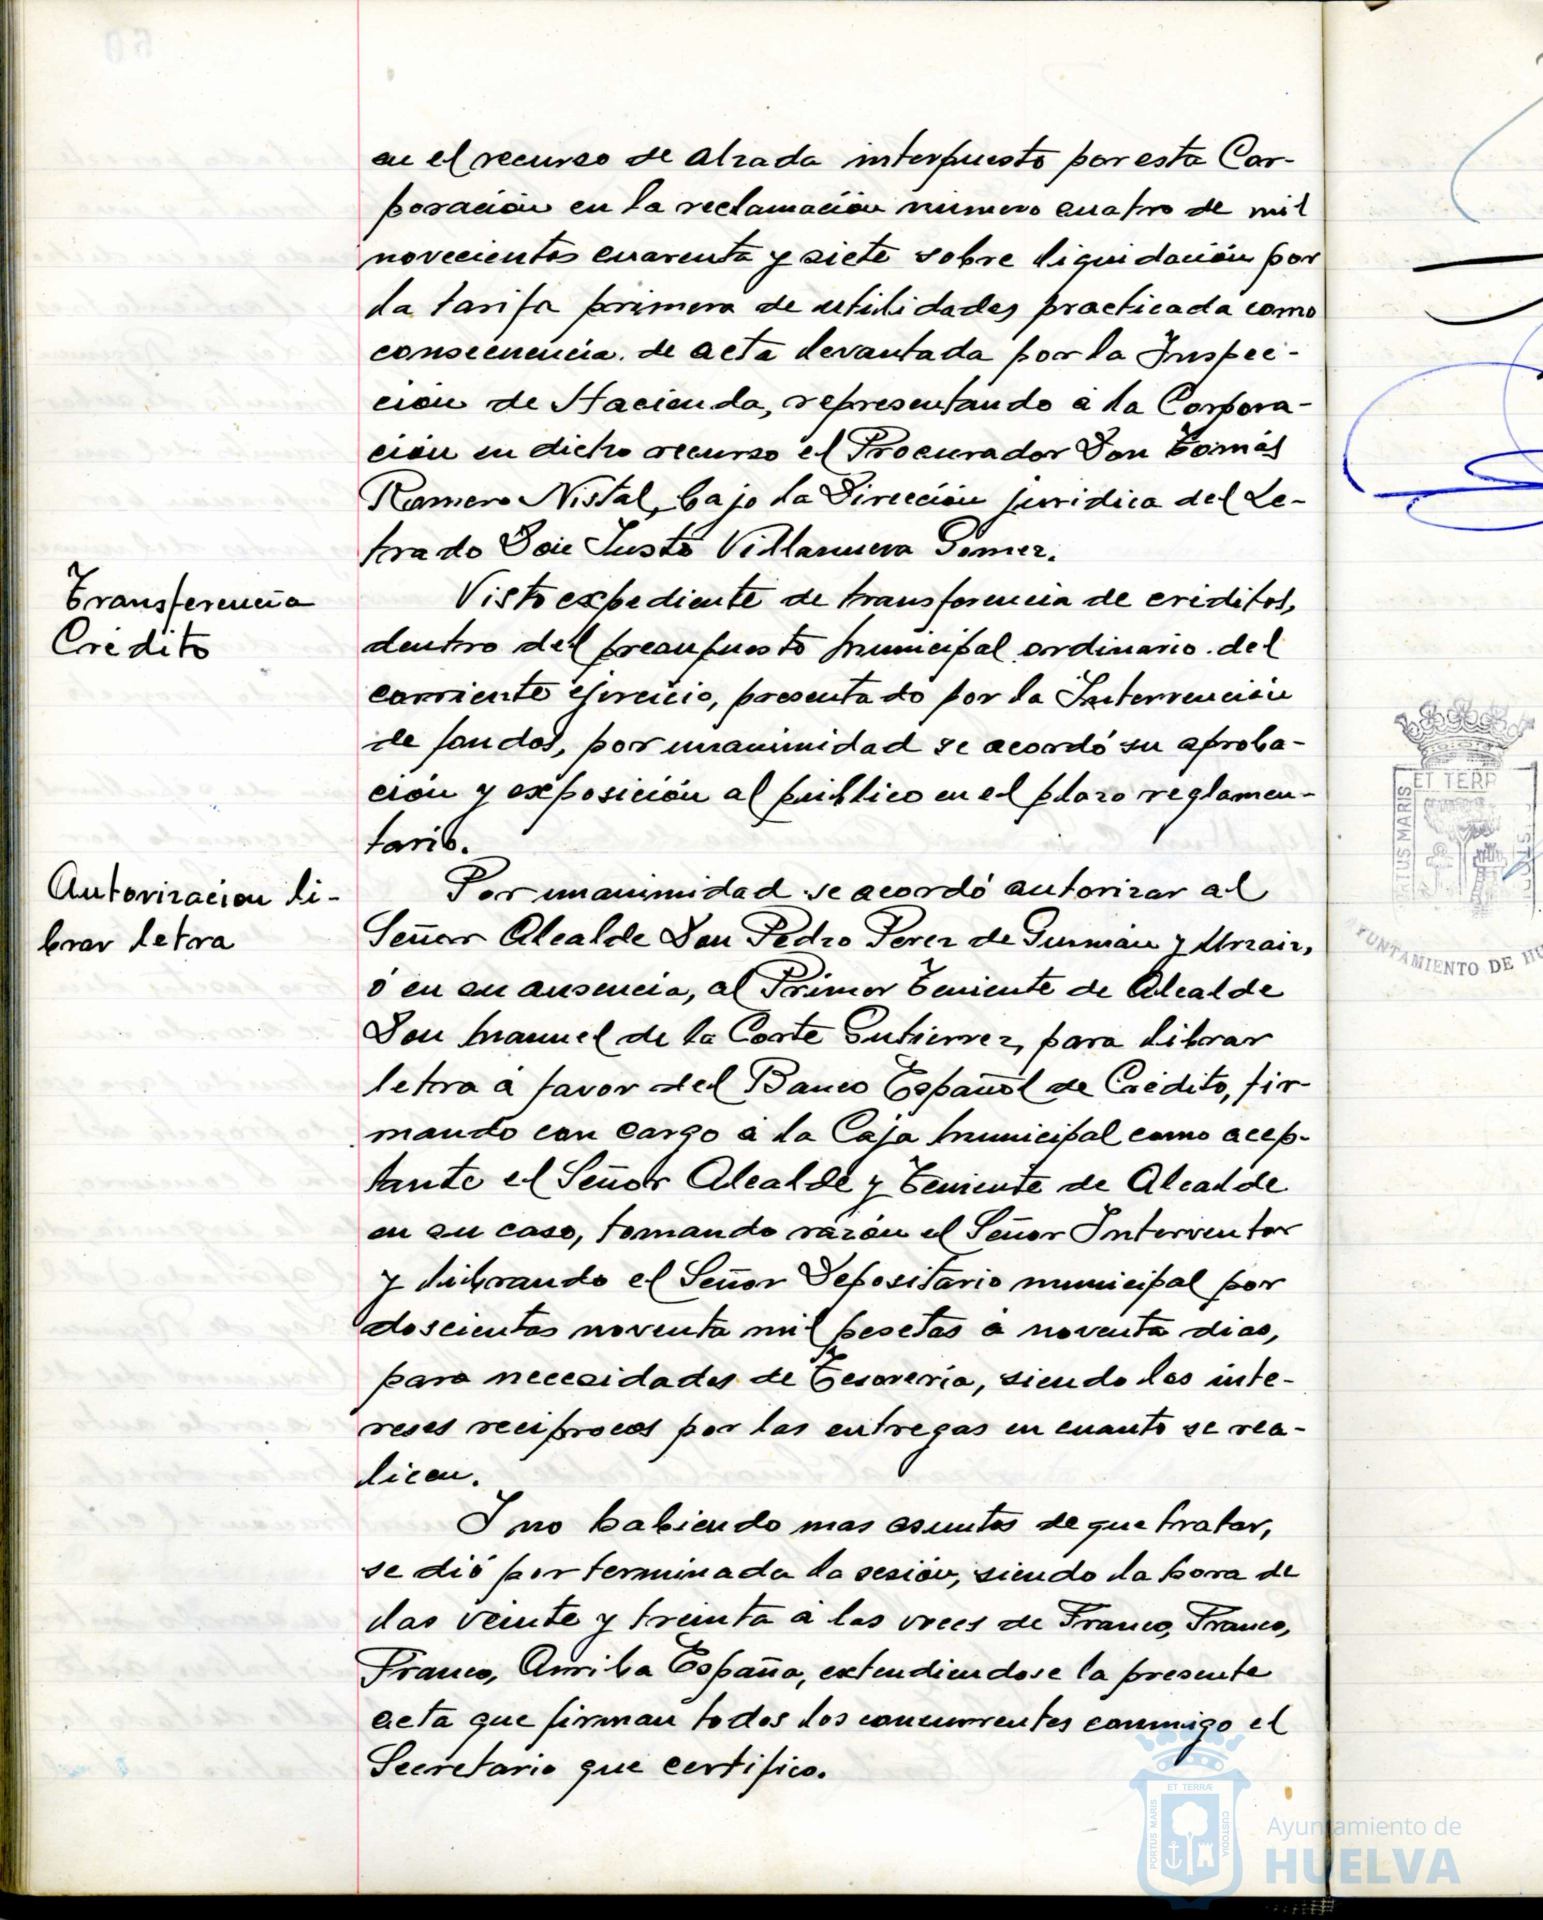 en el recurso de alzada interpuesto por esta Cor-
poración en la reclamación número cuatro de mil
novecientos cuarenta y siete sobre liquidación por
la tarifa primera de utilidades practicada como
consecuencia de acta levantada por la Inspec-
ción de Hacienda, representando á la Corpora-
ción en dicho recurso el Procurador Don Tomás
Romero Nistal, bajo la Dirección juridica del Le-
trado Don Justo Villanueva Gomez.
Transferencia
Crédito
Visto expediente de transferencia de créditos,
dentro del presupuesto municipal ordinario del
corriente ejercicio, presentado por la Intervención
de fondos, por unanimidad se acordó su aproba-
ción y exposición al público en el plazo reglamen-
tario.
Autorizacion li-
brar letra
Por unanimidad se acordó autorizar al
Señor Alcalde Don Pedro Perez de Guzmán y Urzaiz,
ó en su ausencia, al Primer Teniente de Alcalde
Don Manuel de la Corte Gutierrez, para librar
letra á favor del Banco Español de Crédito, fir-
mando con cargo á la Caja Municipal como acep-
tante el Señor Alcalde y Teniente de Alcalde
en su caso, tomando razón el Señor Interventor
y librando el Señor Depositario municipal por
doscientas noventa mil pesetas á noventa dias,
para necesidades de Tesoreria, siendo los inte-
reses reciprocos por las entregas en cuanto se rea-
licen.
Y no habiendo mas asuntos de que tratar,
se dió por terminada la sesión, siendo la hora de
las veinte y treinta á las voces de Franco, Franco,
Franco, Arriba España, extendiendose la presente
acta que firman todos los concurrentes conmigo el
Secretario que certifico.
ET TERR
TUS MARIS
AYUNTAMIENTO DE HU
PORTUS MARIS
ET TERRÆ
CUSTODIA
Ayuntamiento de
HUELVA